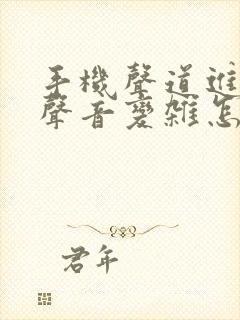 手機聲道進
聲音變雜怎
君年